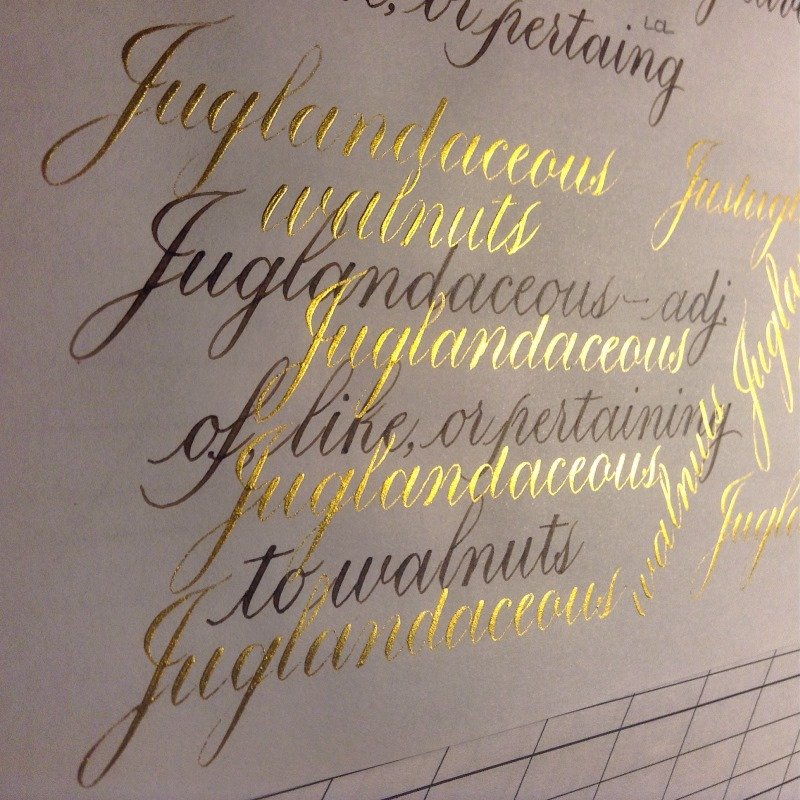 or pertaing
La
Juglandaceous
walnuts
Juglandaceous – adj.
Juglandaceous
of, like, or pertaining
Juglandaceous
walnuts
to walnuts
Juglandaceous